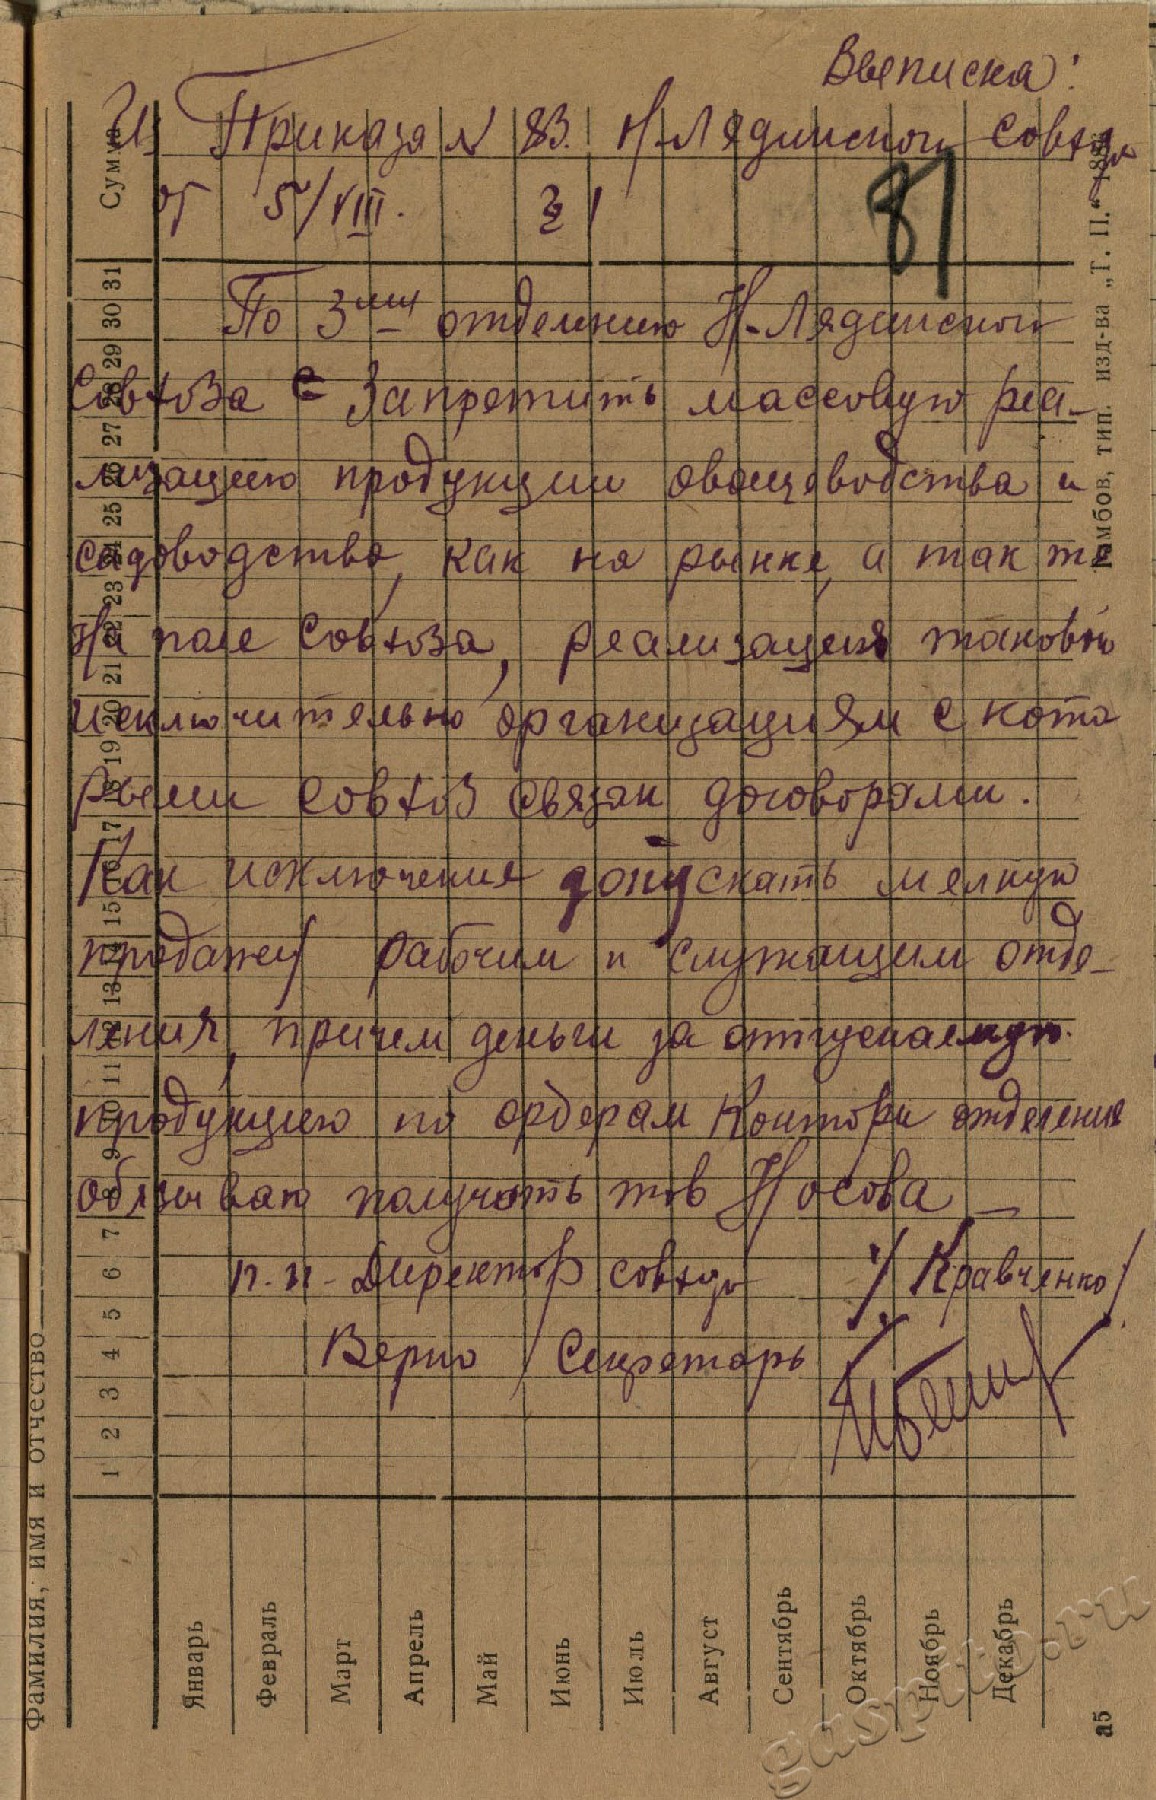 Выписка:
Из Приказа N 83. Н-Лядинского Совхоза
от 5/VIII.
81
По 3му отделению Н-Лядинского
Совхоза Запретить массовую реа-
лизацию продукции овощеводства и
садоводства, как на рынке, а так же
На поле Совхоза, реализация таковой
исключительно организациям с кото
рыми совхоз связан договорами.
Как исключения допускать мелкую
продажу рабочим и служащим отде-
ления, причем деньги за отпускаемую
продукцию по ордерам Конторы отделения
обязываю получать тов Носова
п.п. Директор совхоза / Кравченко/
Верно Секретарь
Сумма
31
30
29
28
27
26
25
24
23
22
21
20
19
18
17
16
15
14
13
12
11
10
9
8
7
6
5
4
3
2
1
Фамилия, имя и отчество
Январь
Февраль
Март
Апрель
Май
Июнь
Июль
Август
Сентябрь
Октябрь
Ноябрь
Декабрь
Тамбов, тип. изд-ва „Т. П.“
а5
gaspito.ru